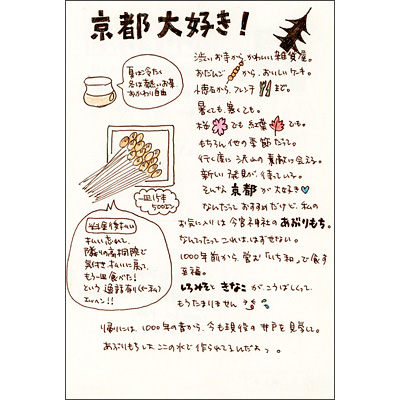 京都大好き！
渋いお寺から、かわいい雑貨屋。
おだんごから、おいしいケーキ。
懐石から、フレンチまで。
暑くても、寒くても。
桜でも紅葉でも。
もちろん他の季節だって。
行く度に沢山の素敵に会える。
新しい発見が、待っている。
そんな京都が大好き
なんだっておすすめだけど、私の
お気に入りは今宮神社のあぶりもち。
なんたってこれは、はずせない。
1000年前から営む「いち和」で食す
至福。
しろみそときなこが、こうばしくって、
もうたまりません
帰りには、1000年の昔から、今も現役の井戸を見学して。
あぶりもちは、ここの水で作られてるんだよっ。
夏は冷たく
冬は熱いお茶
おかわり自由
一皿15本
500円
払い忘れて、
隣りの高桐院で
気付き、払いに戻って、
もう一皿食べた！
という逸話有り(←私)
エッヘン！！